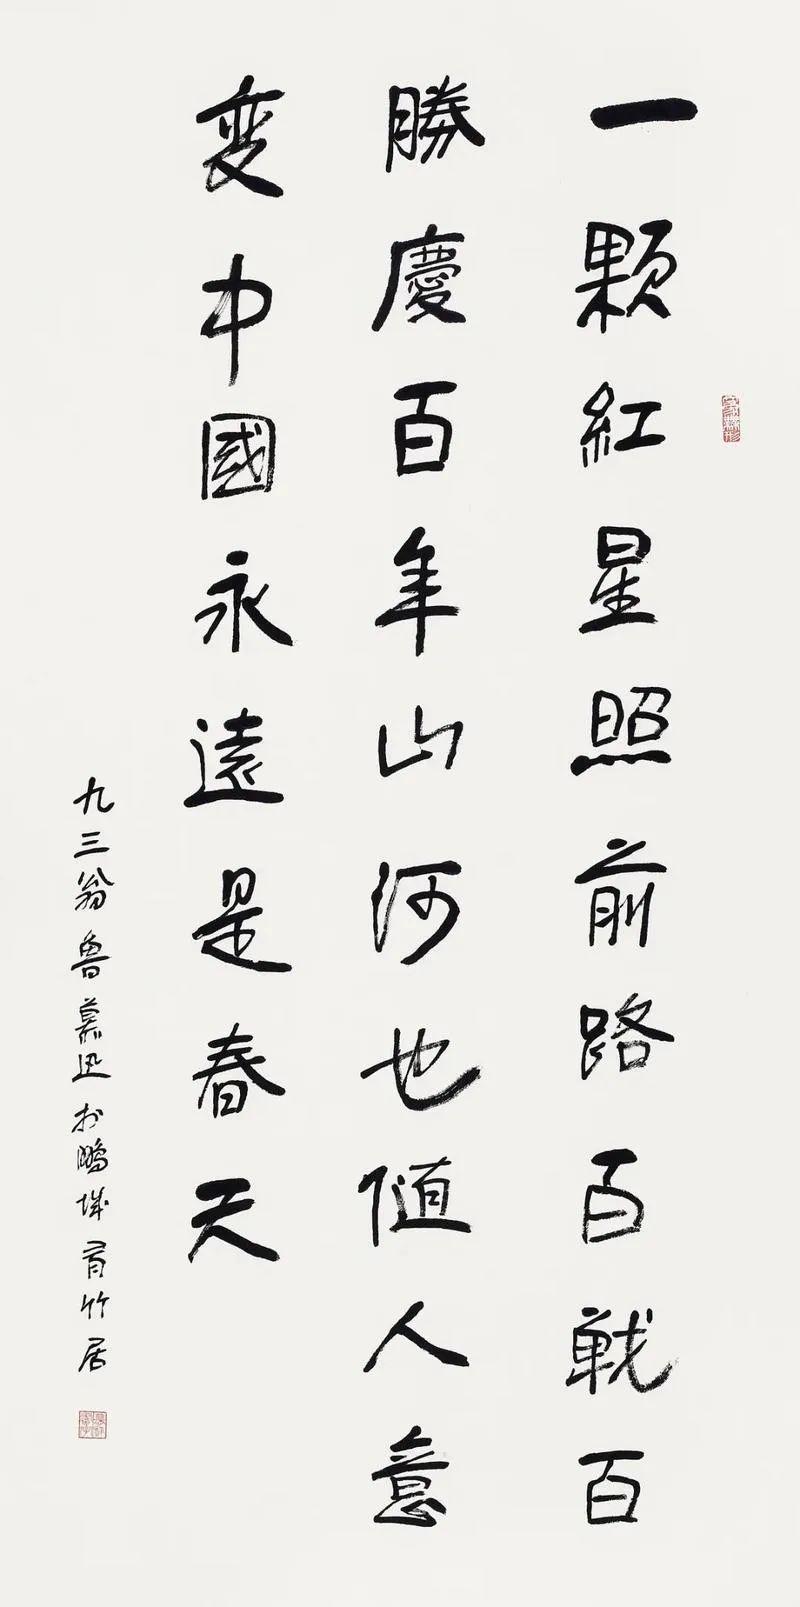 一顆紅星照前路百戰百
勝慶百年山河也随人意
变中國永遠是春天
九三翁魯慕迅於鵬城有竹居